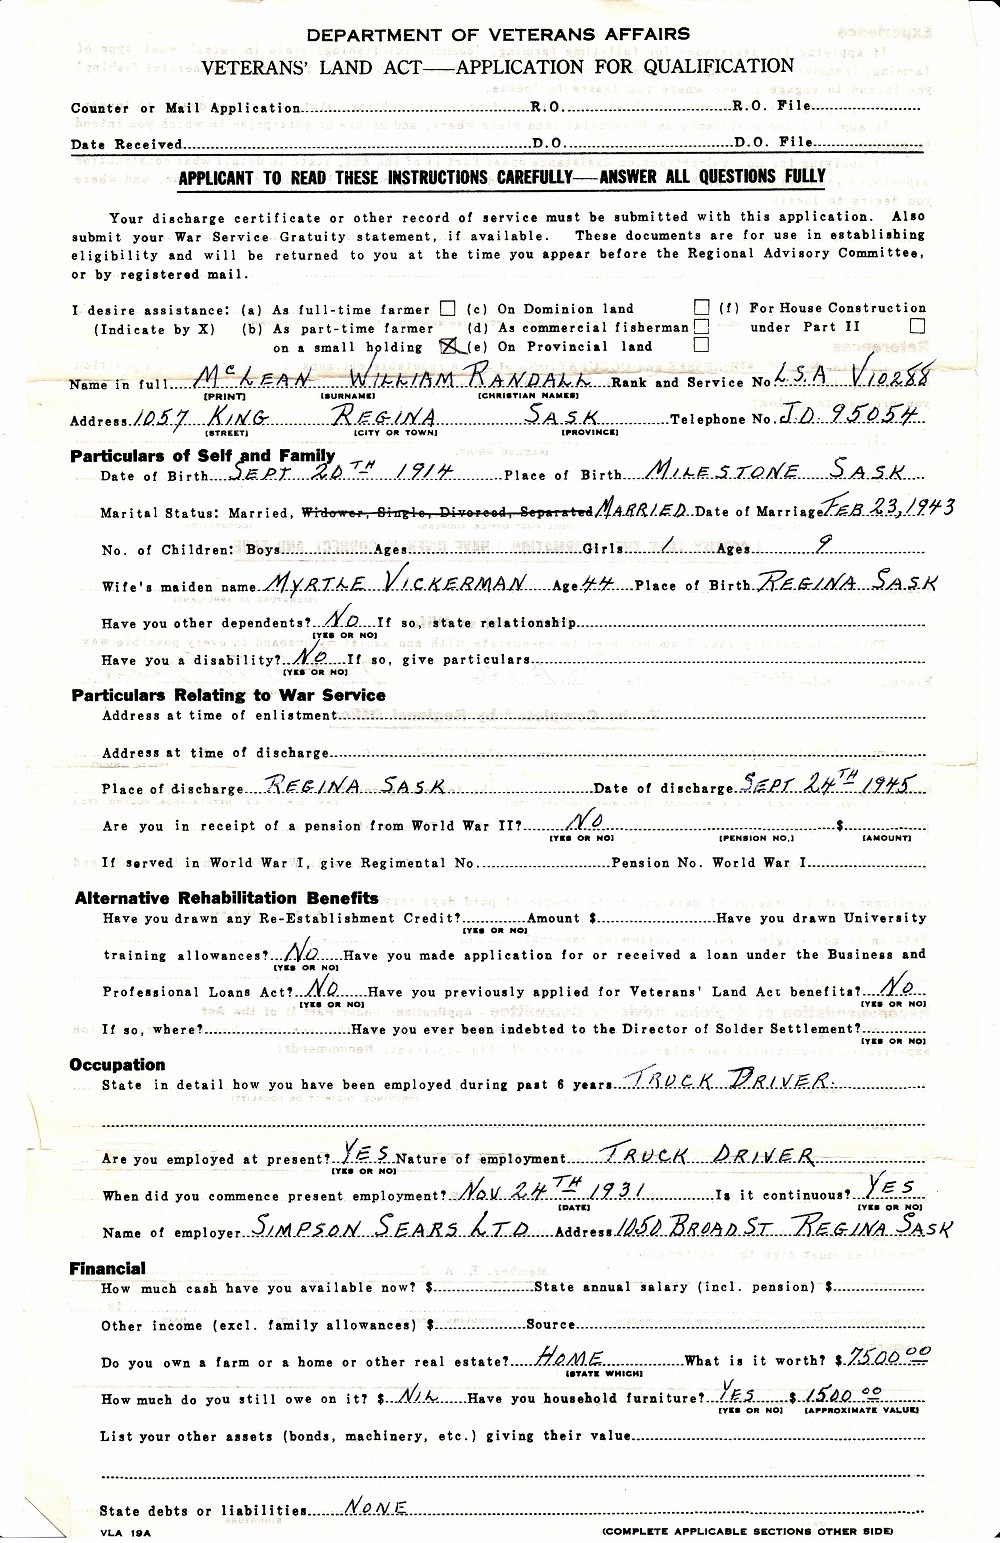 DEPARTMENT OF VETERANS AFFAIRS
VETERANS' LAND ACT—APPLICATION FOR QUALIFICATION
Counter or Mail Application R.O. R.O. File
Date Received D.O. D.O. File
APPLICANT TO READ THESE INSTRUCTIONS CAREFULLY—ANSWER ALL QUESTIONS FULLY
Your discharge certificate or other record of service must be submitted with this application. Also
submit your War Service Gratuity statement, if available. These documents are for use in establishing
eligibility and will be returned to you at the time you appear before the Regional Advisory Committee,
or by registered mail.
I desire assistance: (a) As full-time farmer ☐ (c) On Dominion land ☐ (f) For House Construction
(Indicate by X) (b) As part-time farmer (d) As commercial fisherman ☐ under Part II ☐
on a small holding ☒ (e) On Provincial land ☐
Name in full McLEAN WILLIAM RANDALL Rank and Service No. L.S.A V10288
[PRINT] [SURNAME] [CHRISTIAN NAMES]
Address 1057 KING REGINA SASK Telephone No. J.D. 95054
[STREET] [CITY OR TOWN] [PROVINCE]
Particulars of Self and Family
Date of Birth SEPT 20TH 1914 Place of Birth MILESTONE SASK
Marital Status: Married, Widower, Single, Divorced, Separated MARRIED Date of Marriage FEB 23, 1943
No. of Children: Boys Ages Girls 1 Ages 9
Wife's maiden name MYRTLE VICKERMAN Age 44 Place of Birth REGINA SASK
Have you other dependents? NO If so, state relationship
[YES OR NO]
Have you a disability? NO If so, give particulars
[YES OR NO]
Particulars Relating to War Service
Address at time of enlistment
Address at time of discharge
Place of discharge REGINA SASK Date of discharge SEPT 24TH 1945
Are you in receipt of a pension from World War II? NO $
[YES OR NO] [PENSION NO.] [AMOUNT]
If served in World War I, give Regimental No. Pension No. World War I
Alternative Rehabilitation Benefits
Have you drawn any Re-Establishment Credit? Amount $ Have you drawn University
[YES OR NO]
training allowances? NO Have you made application for or received a loan under the Business and
[YES OR NO]
Professional Loans Act? NO Have you previously applied for Veterans' Land Act benefits? NO
[YES OR NO] [YES OR NO]
If so, where? Have you ever been indebted to the Director of Solder Settlement?
[YES OR NO]
Occupation
State in detail how you have been employed during past 6 years TRUCK DRIVER.
Are you employed at present? YES Nature of employment TRUCK DRIVER
[YES OR NO]
When did you commence present employment? NOV 24TH 1931 Is it continuous? YES
[DATE] [YES OR NO]
Name of employer SIMPSON SEARS LTD Address 1050 BROAD ST REGINA SASK
Financial
How much cash have you available now? $ State annual salary (incl. pension) $
Other income (excl. family allowances) $ Source
Do you own a farm or a home or other real estate? HOME What is it worth? $ 7500 00
[STATE WHICH]
How much do you still owe on it? $ NIL Have you household furniture? YES $ 1500 00
[YES OR NO] [APPROXIMATE VALUE]
List your other assets (bonds, machinery, etc.) giving their value
State debts or liabilities NONE
VLA 19A (COMPLETE APPLICABLE SECTIONS OTHER SIDE)